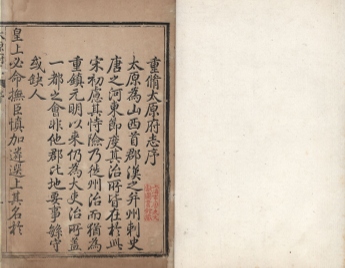 重脩太原府志序
太原為山西首郡漢之并州刺史
唐之河東節度其治所皆在於此
宋初慮其恃險乃徙州治而猶為
重鎮元明以來仍為大吏治所蓋
一都之會非他郡比地要事繇守
或缺人
皇上必命撫臣慎加遴選上其名於